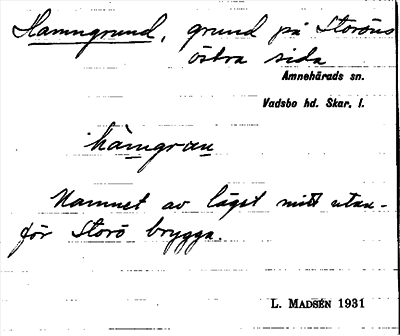 Hamngrund, grund på Storöns
östra sida
Amnehärads sn.
Vadsbo hd. Skar. l.
hàmgrɑn
Namnet av läget mitt utan-
för Storö brygga.
L. MADSÉN 1931